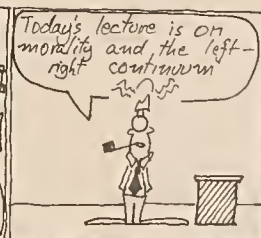 Today's lecture is on
morality and the left-
right continuum